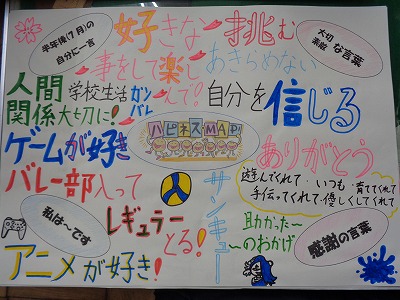 半年後(7月)の
自分に一言
好きな
事をして楽
しんで!
挑む
あきらめない
大切
素敵
な言葉
人間
関係大切に!
学校生活ガン
バレ
自分を
信じる
ハピネスMAP!
ゲームが好き
バレー部入って
レギュラー
とる!
サンキュー
ありがとう
遊んでくれて・いつも・育ててくれて
手伝ってくれて・優しくしてくれて
助かった~
~のおかげ
私は~です
アニメが好き!
感謝の言葉